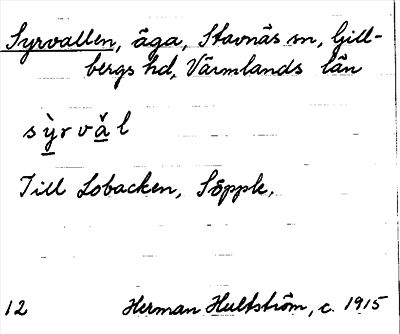 Syrvallen, äga, Stavnäs sn, Gill-
bergs hd, Värmlands län
sỳrvål
Till Lobacken, Söpple.
12 Herman Hultström, c. 1915